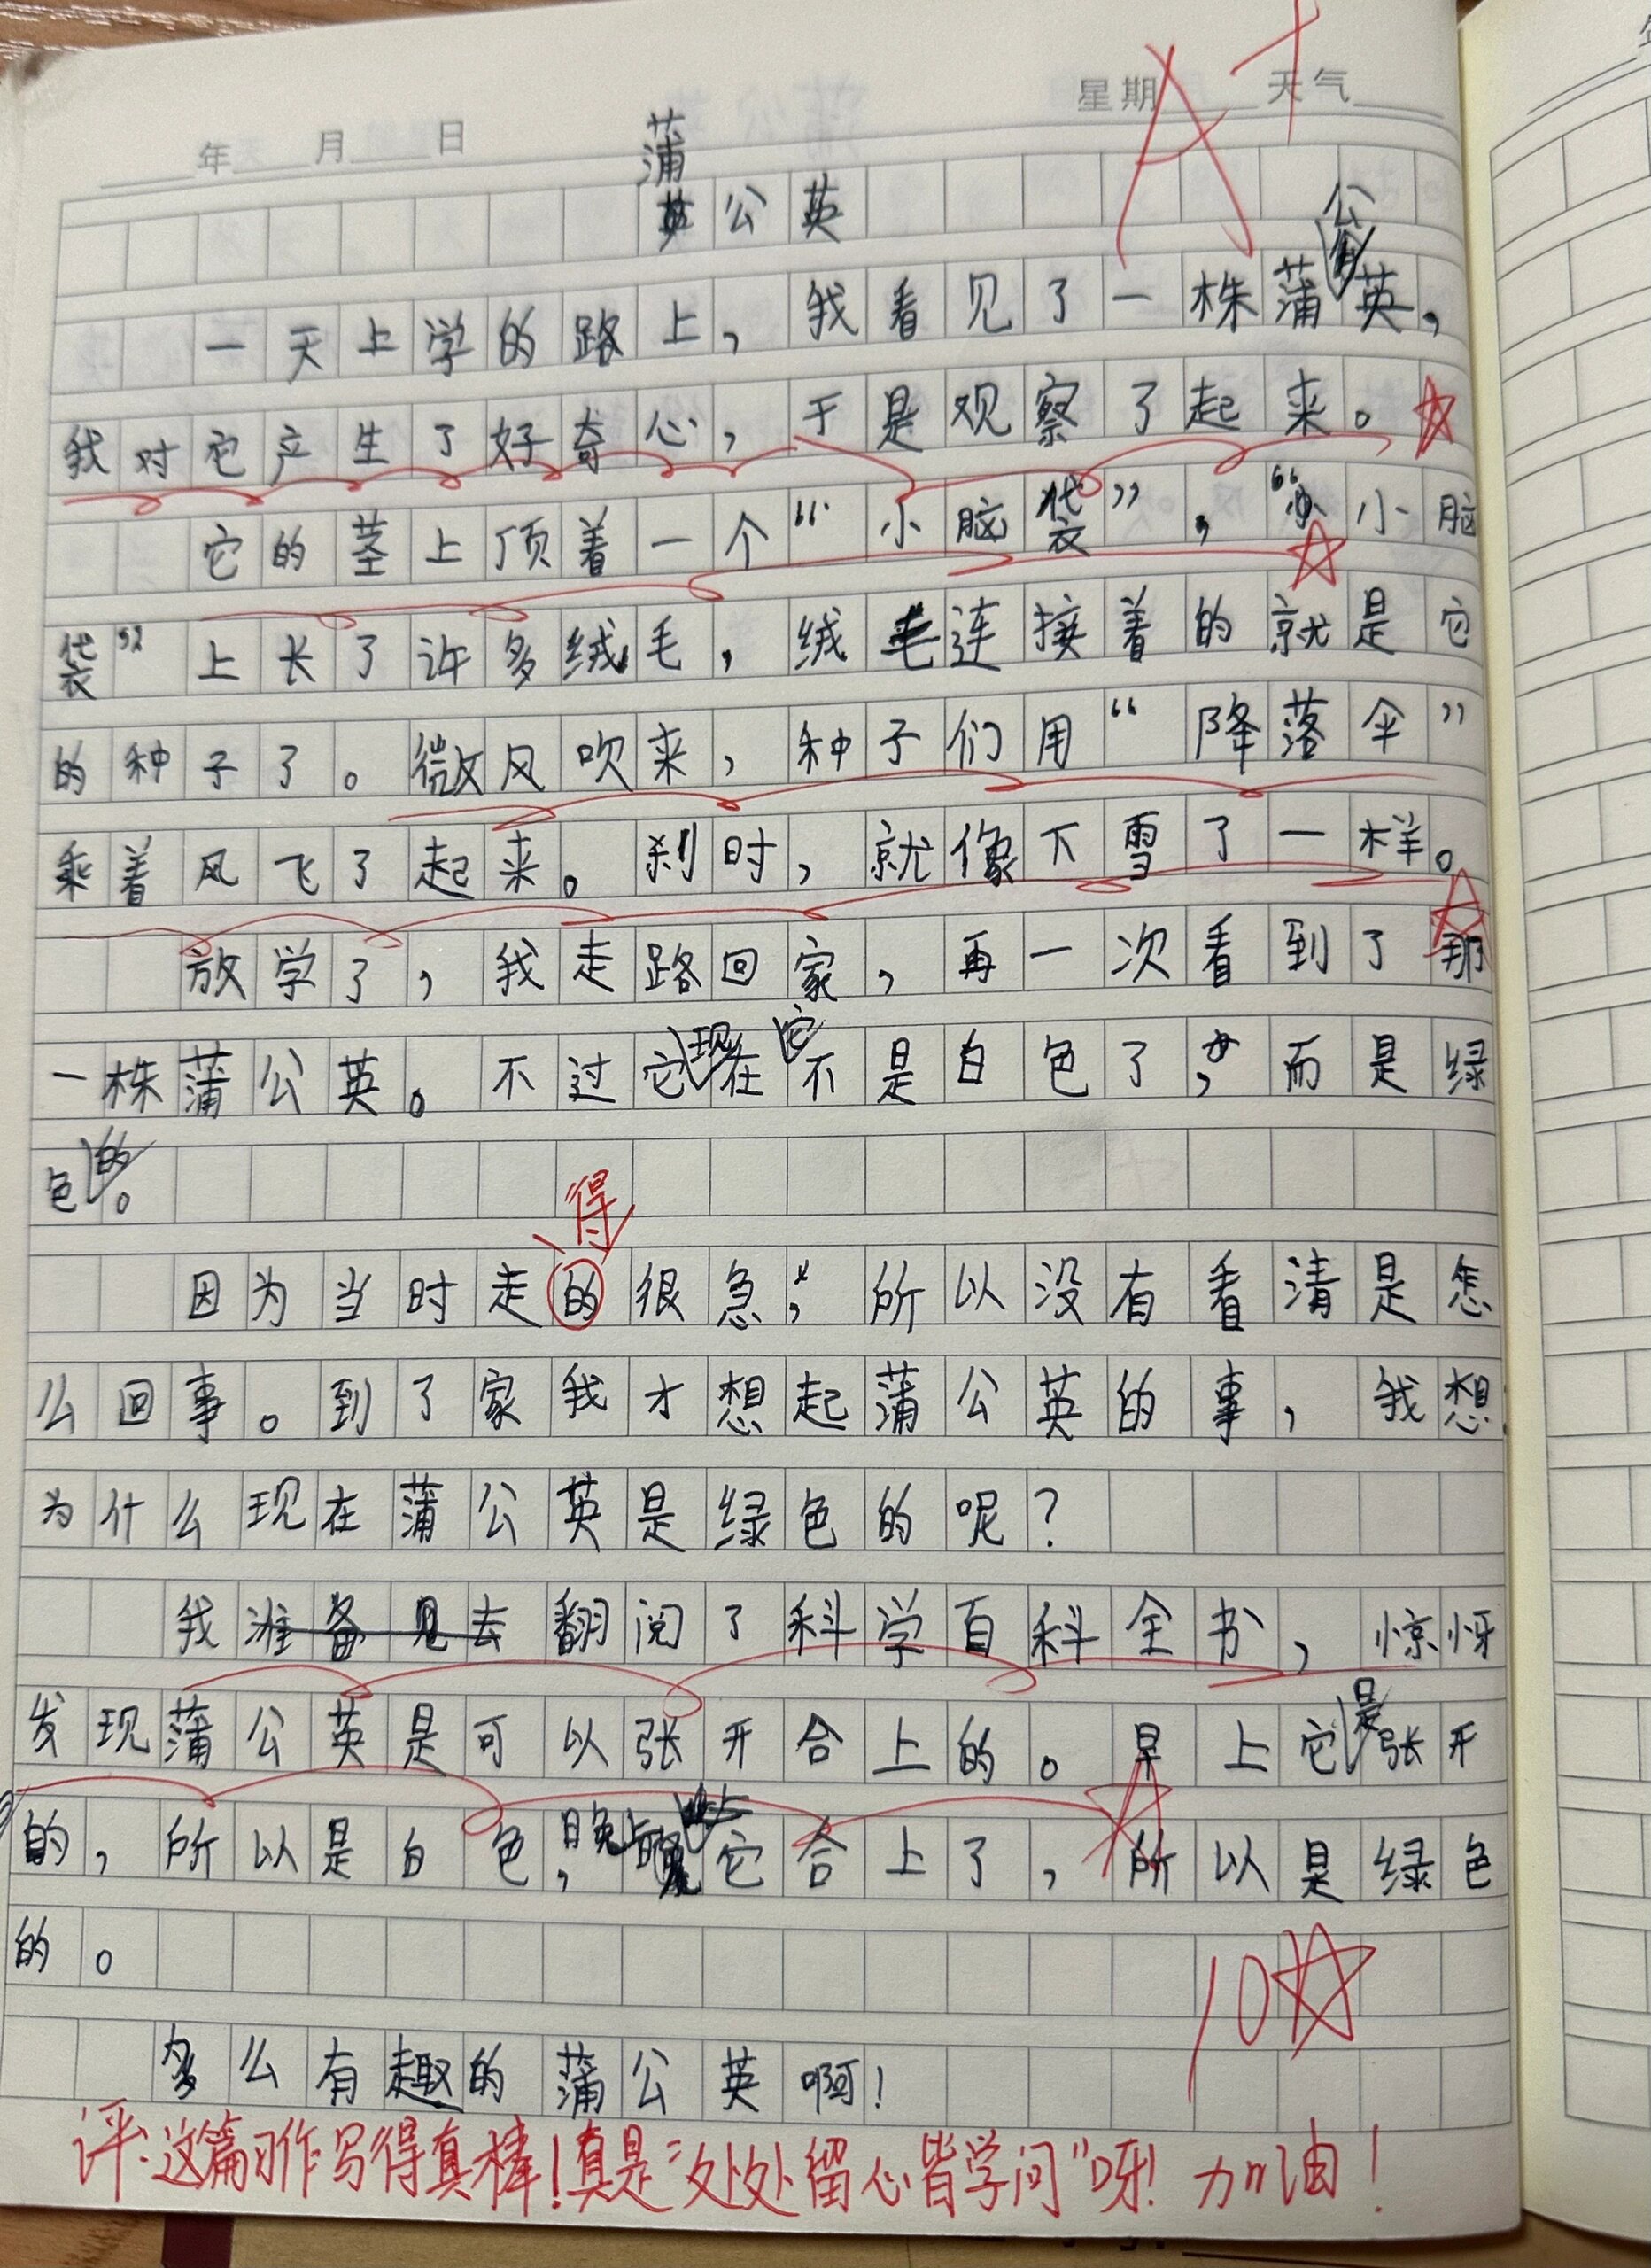 年 月 日 星期 天气
A+
蒲公英
一天上学的路上，我看见了一株蒲公英，
我对它产生了好奇心，于是观察了起来。
它的茎上顶着一个“小脑袋”，“小脑
袋”上长了许多绒毛，绒毛连接着的就是它
的种子了。微风吹来，种子们用“降落伞”
乘着风飞了起来。刹时，就像下雪了一样。
放学了，我走路回家，再一次看到了那
一株蒲公英。不过它现在它不是白色了，而是绿
色的。
得
因为当时走的很急，所以没有看清是怎
么回事。到了家我才想起蒲公英的事，我想：
为什么现在蒲公英是绿色的呢？
我准备见去翻阅了科学百科全书，惊呀
发现蒲公英是可以张开合上的。早上它是张开
的，所以是白色，晚上它合上了，所以是绿色
的。
10☆
多么有趣的蒲公英啊！
评：这篇习作写得真棒！真是“处处留心皆学问”呀！加油！